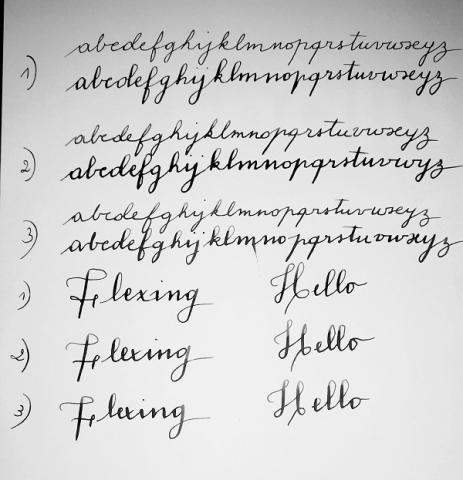 1) abcdefghijklmnopqrstuvwxyz
abcdefghijklmnopqrstuvwxyz
2) abcdefghijklmnopqrstuvwxyz
abcdefghijklmnopqrstuvwyz
3) abcdefghijklmnopqrstuvwxyz
abcdefghijklmnopqrstuvwxyz
1) Flexing Hello
2) Flexing Hello
3) Flexing Hello